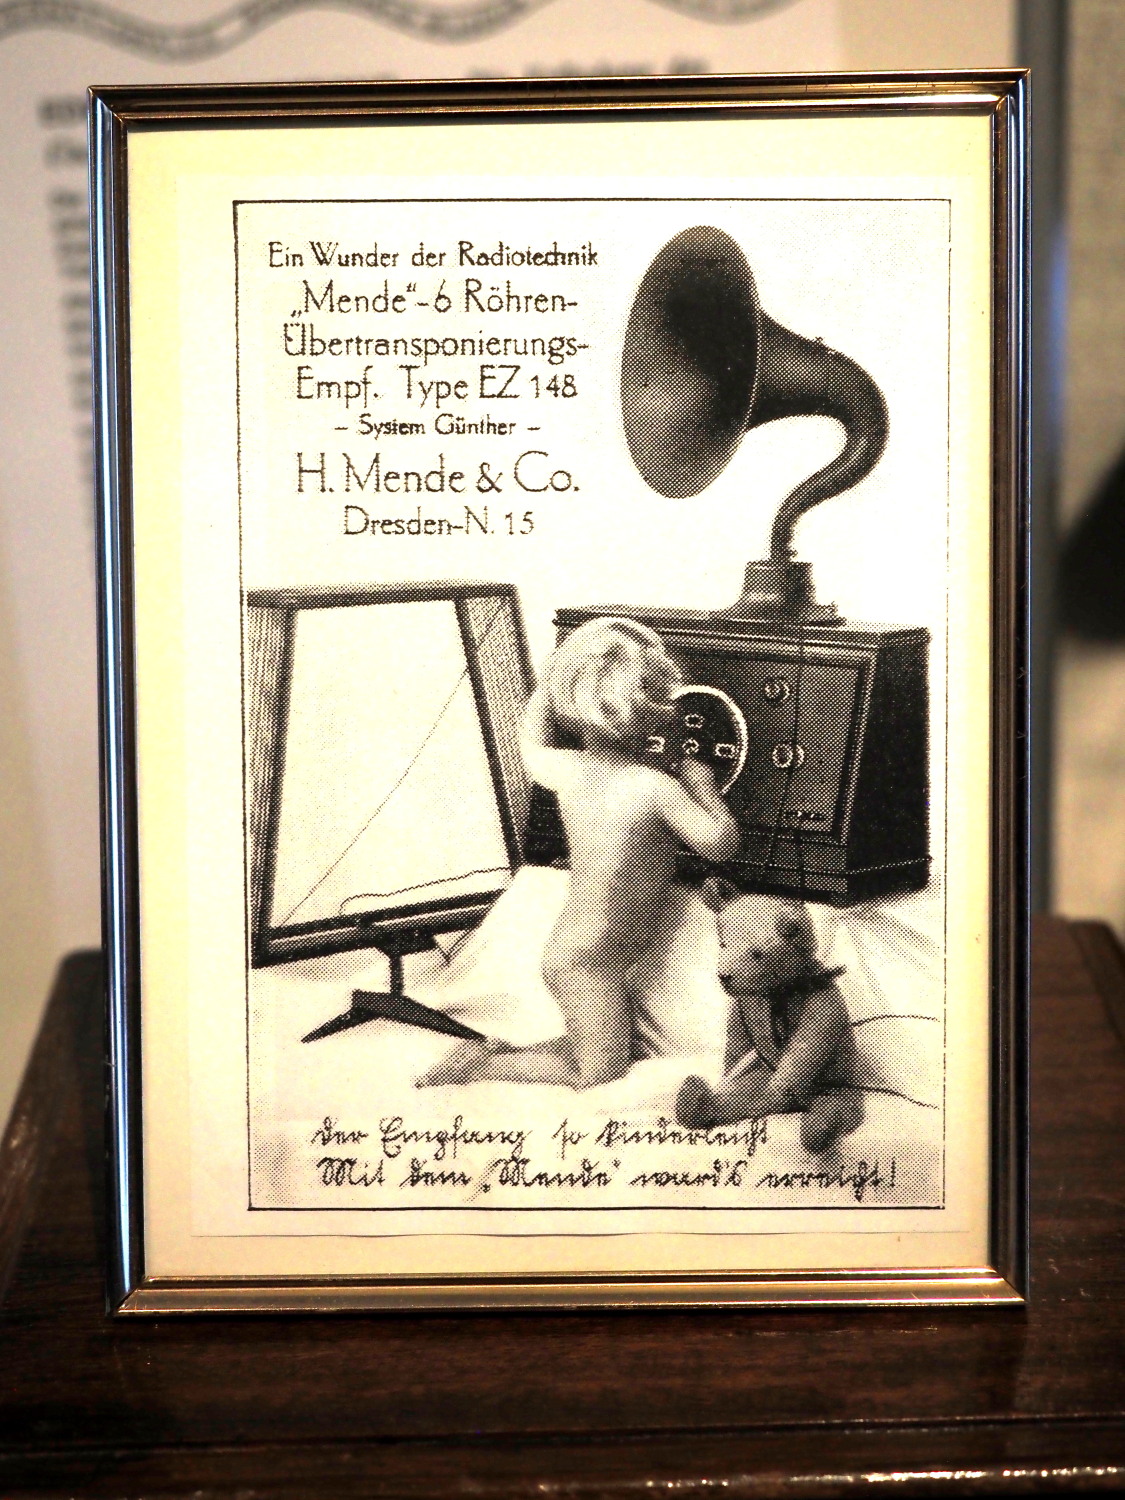 Ein Wunder der Radiotechnik
„Mende“-6 Röhren-
Übertransponierungs-
Empf. Type EZ 148
- System Günther -
H. Mende & Co.
Dresden-N. 15
Der Empfang so kinderleicht
Mit dem „Mende“ ward's erreicht!